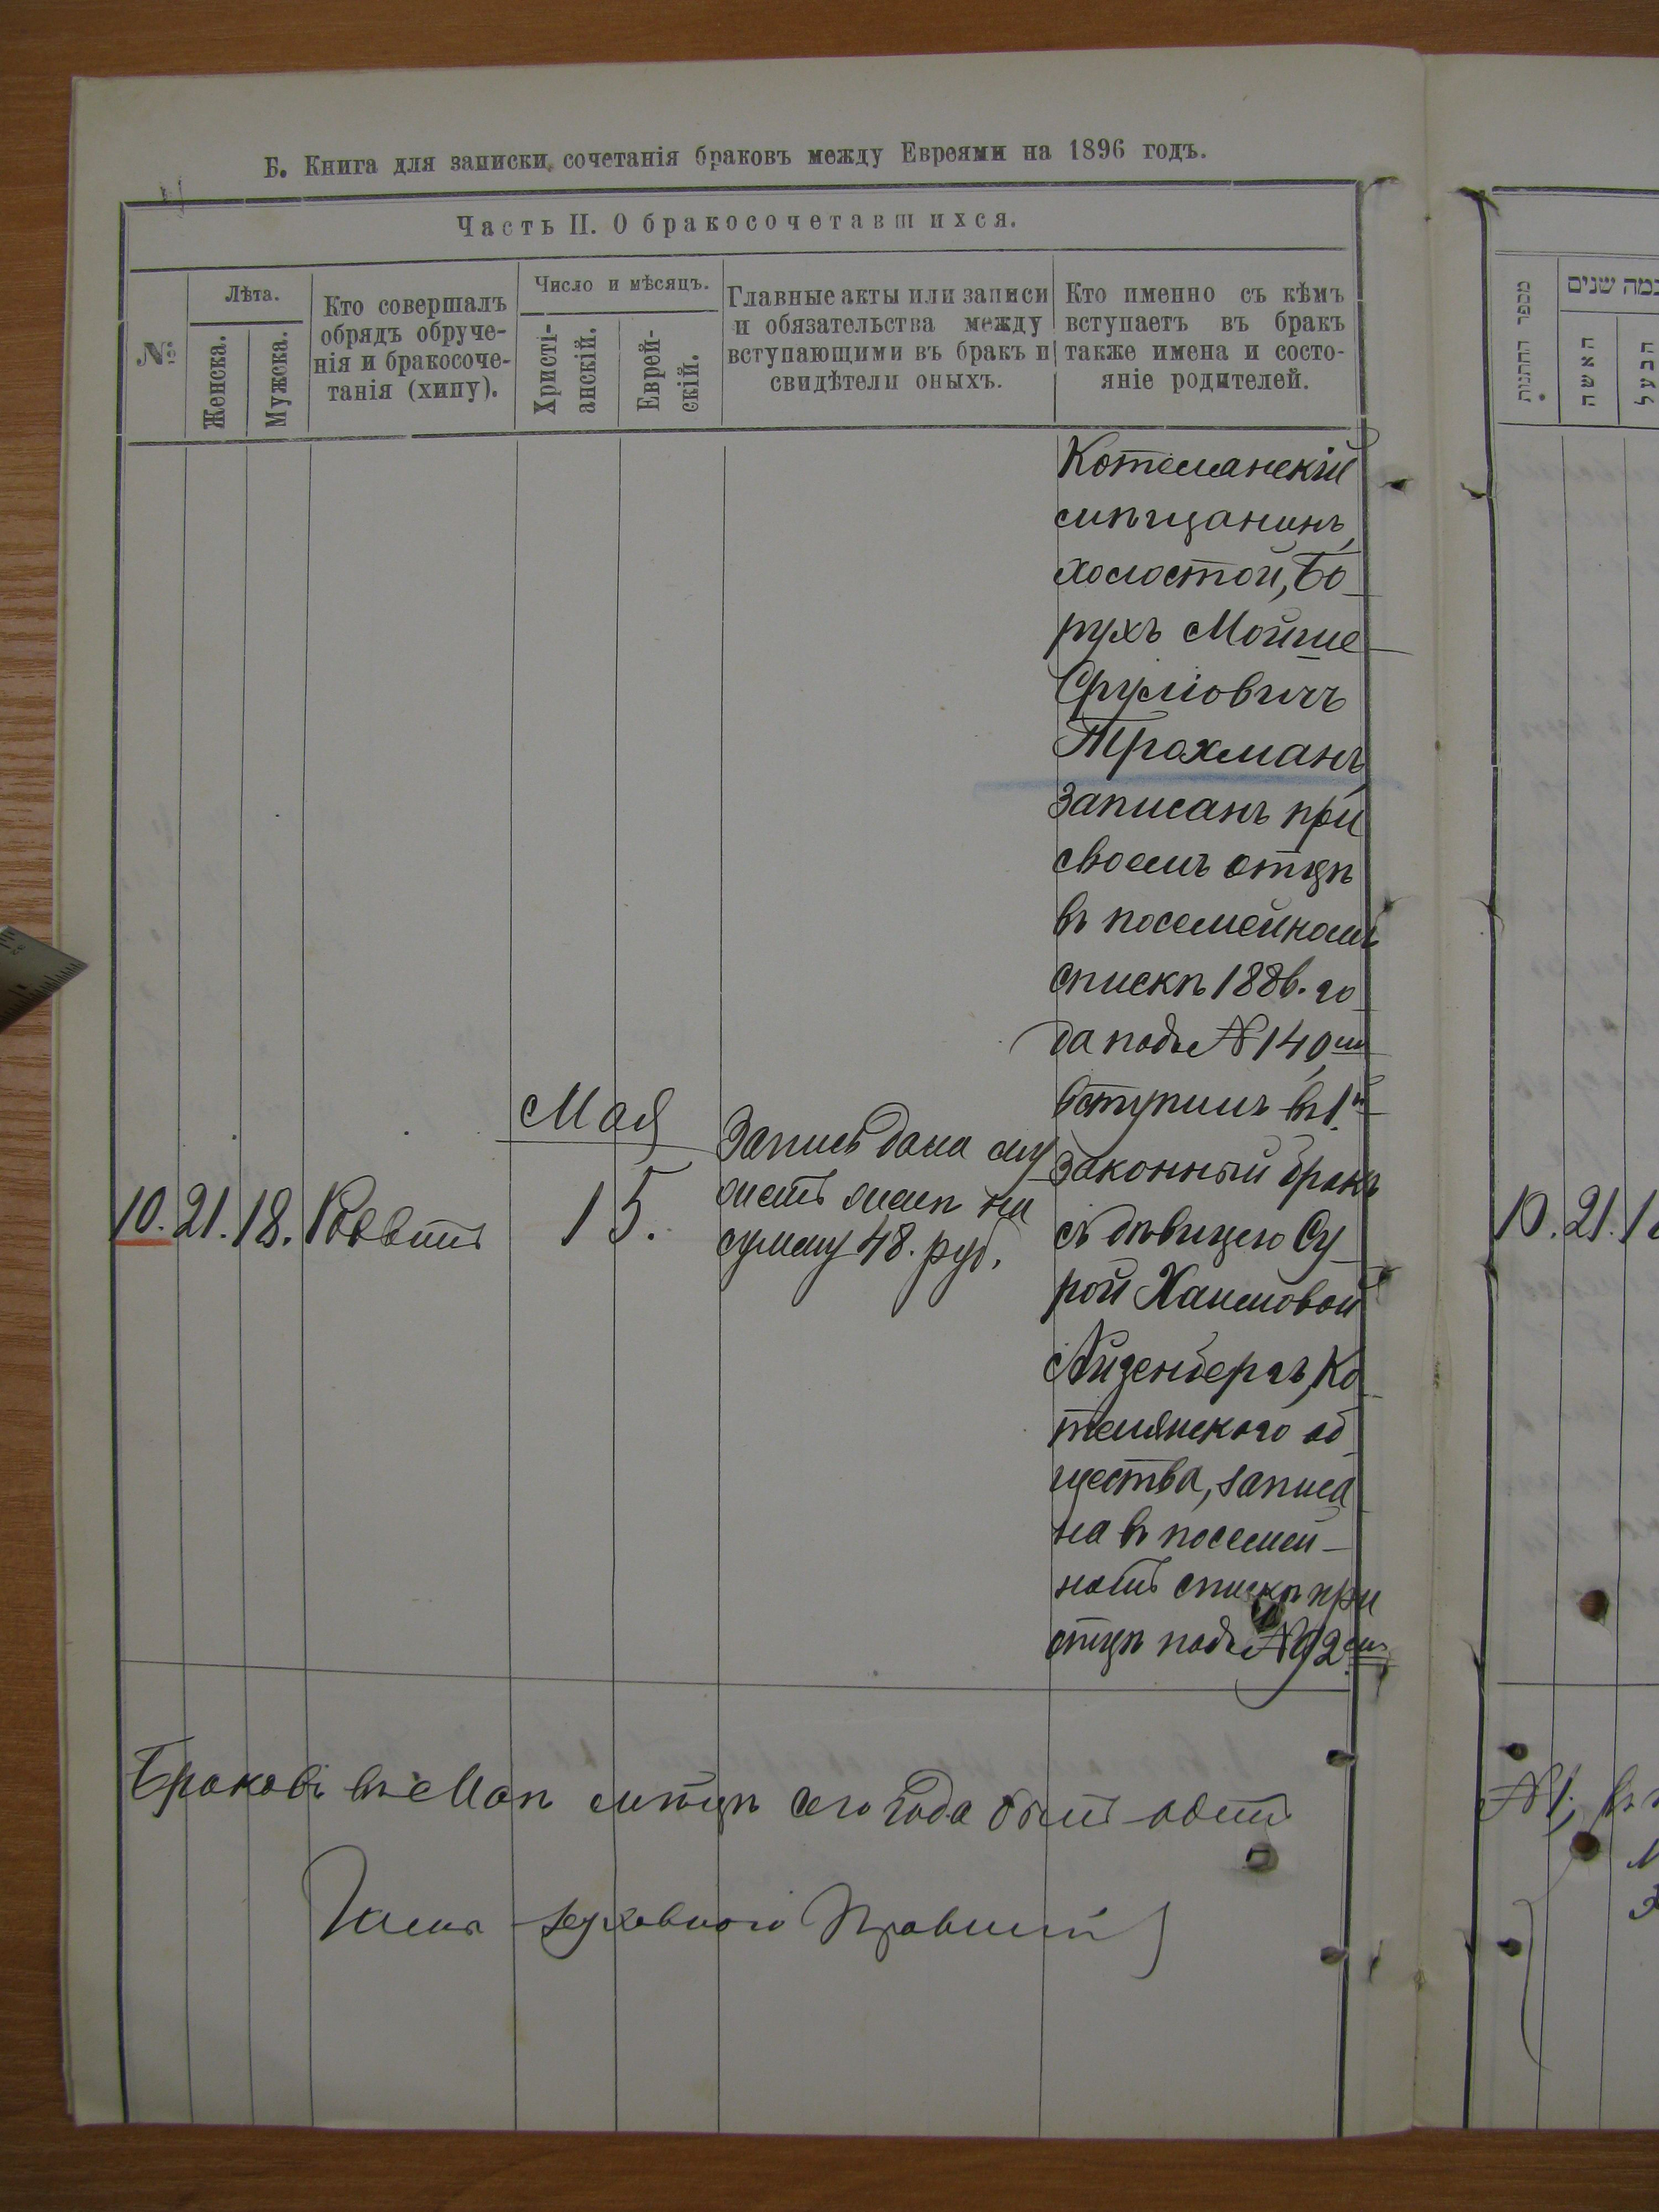 Б. Книга для записки сочетанія браковъ между Евреями на 1896 годъ.
Часть II. О бракосочетавшихся.
№
Лѣта.
Женска.
Мужска.
Кто совершалъ
обрядъ обруче-
нія и бракосоче-
танія (хипу).
Число и мѣсяцъ.
Христі-
анскій.
Еврей-
скій.
Главные акты или записи
и обязательства между
вступающими въ бракъ и
свидѣтели оныхъ.
Кто именно съ кѣмъ
вступаетъ въ бракъ
также имена и состо-
яніе родителей.
10. 21. 18.
Мая
15.
Запись дана
на
сумму 48. руб.
Котелянскій
мѣщанинъ,
холостой, Бо-
рухъ Мойше-
Сруліовичъ
Трахманъ,
записанъ при
своемъ отцѣ
въ посемейномъ
спискѣ 188 го-
да подъ № 140,мъ
вступилъ въ 1й
законный бракъ
съ дѣвицею Су-
рой Хаимовой
Айзенбергъ, Ко-
телянскаго об-
щества, записа-
на въ посемей-
номъ спискѣ при
отцѣ подъ № 92мъ
Браковъ въ Маѣ мѣсяцѣ сего года былъ одинъ
Членъ духовнаго Правленія
מספר החתנות
כמה שנים
האשה
הבעל
10. 21. 18
№ 1, въ